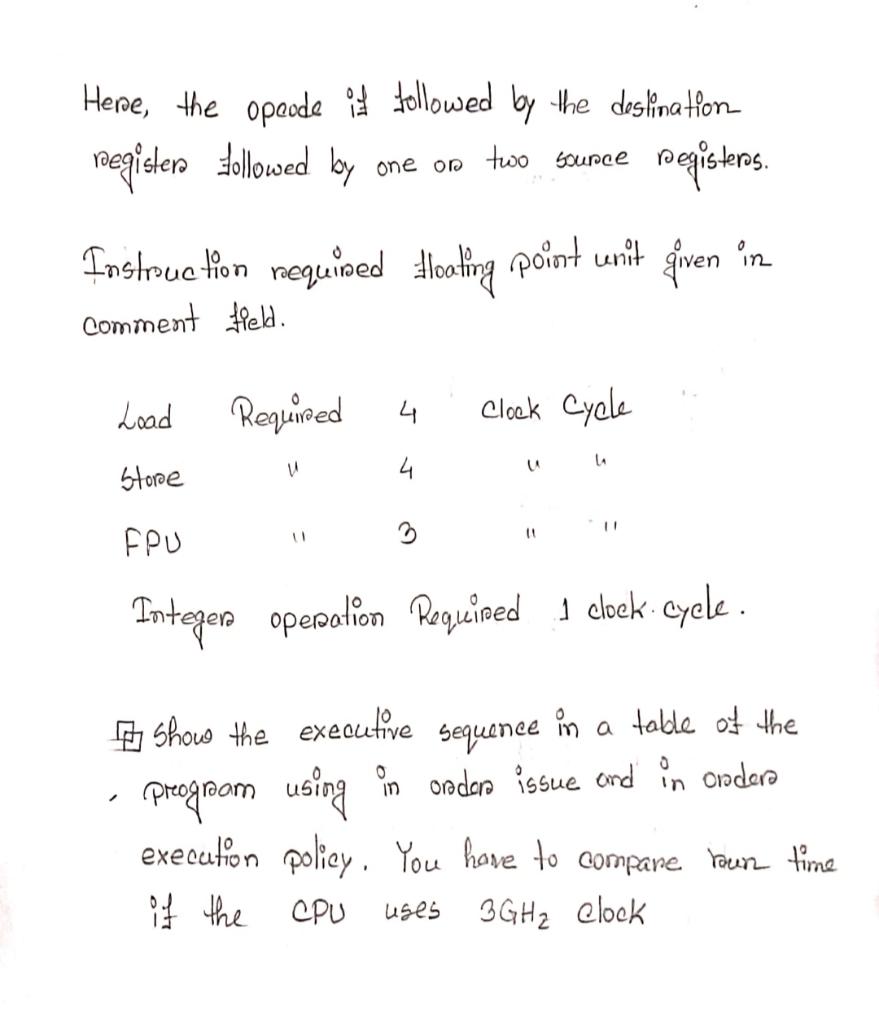 Here, the opcode if followed by the destination
register followed by one or two source registers.
Instruction required floating point unit given in
comment field.
Load Required 4 Clock Cycle
Store " 4 " "
FPU " 3 " "
Integer operation Required 1 clock cycle.
Show the executive sequence in a table of the
program using in order issue and in order
execution policy. You have to compare run time
if the CPU uses 3GHz Clock